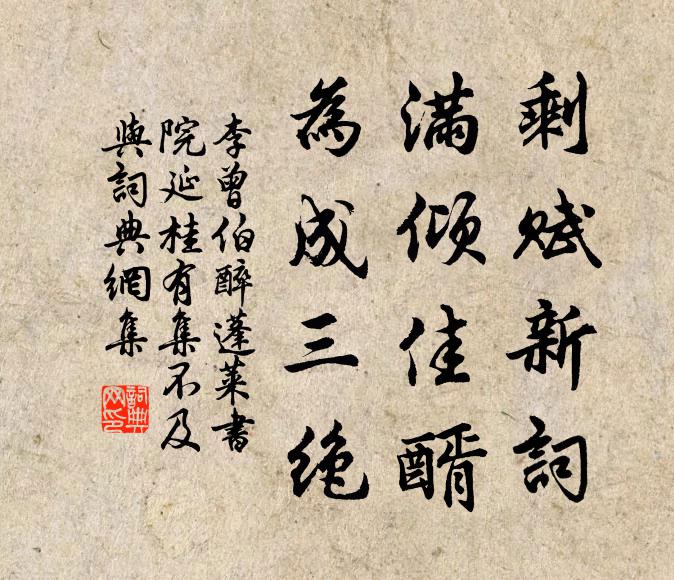 剩赋新詞
满倾佳醑
為成三绝
李曾伯醉蓬莱書
院延桂有集不及
與詞典網集
詞典
网印